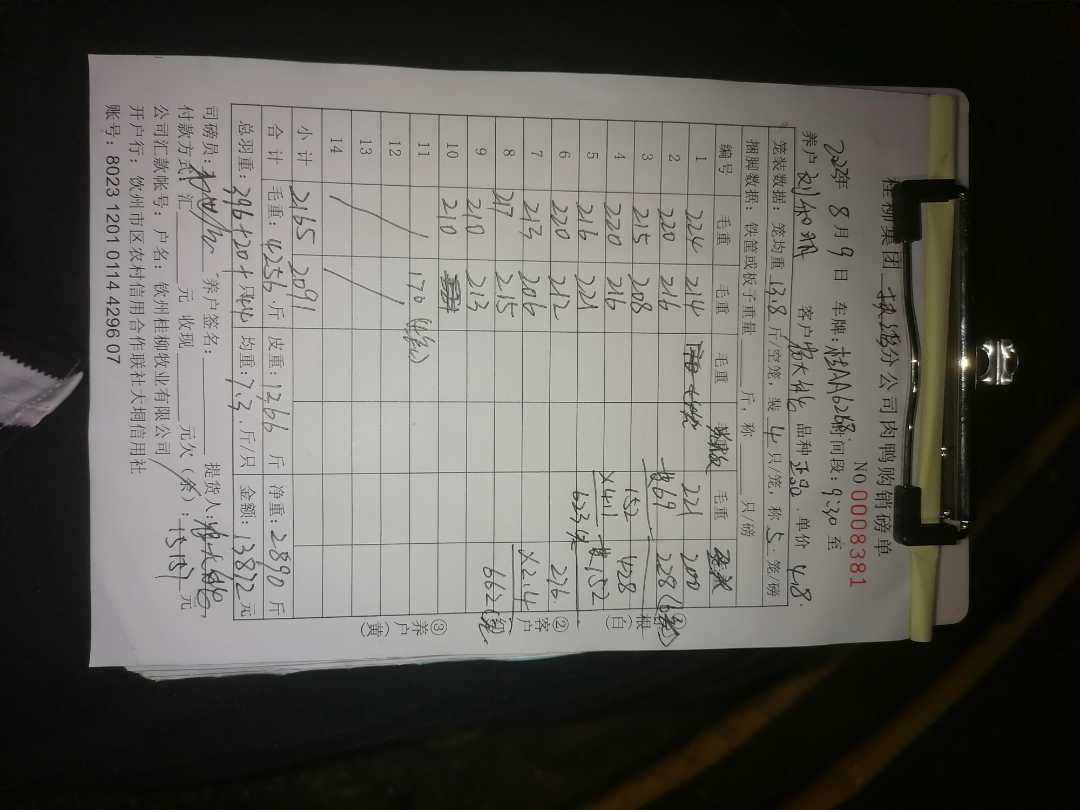 桂柳集团 分公司肉鸭购销磅单
NO 0008381
8月9日 车牌：桂AA6268 时间段：9:30 至
养户 刘 客户 大 品种 正品 单价 4.8
笼装数据：笼均重 13.8 斤/空笼，装 4 只/笼，称 5 笼/磅
捆脚数据：铁筐或板子重量 斤，称 只/磅
编号 毛重 毛重 毛重 毛重
1 224 214 221 200
2 220 216 69 228
3 215 208 152 428
4 220 216 ×4.1 152
5 216 221 623 276
6 220 212 ×2.4
7 213 206 662
8 217 215
9 210 213
10 210
11 170
12
13
14
小计 2165 2091
合计 毛重：4256 斤 皮重：1366 斤 净重：2890 斤
总羽重：396+20+ 只 均重：7.3 斤/只 金额：13872 元
司磅员： 养户签名： 提货人：
付款方式：汇 元 收现 元欠（条）：15157 元
公司汇款帐号：户名：钦州桂柳牧业有限公司
开户行：钦州市区农村信用合作联社大垌信用社
账号：8023 1201 0114 4296 07
①根（白）
②客户（红）
③养户（黄）